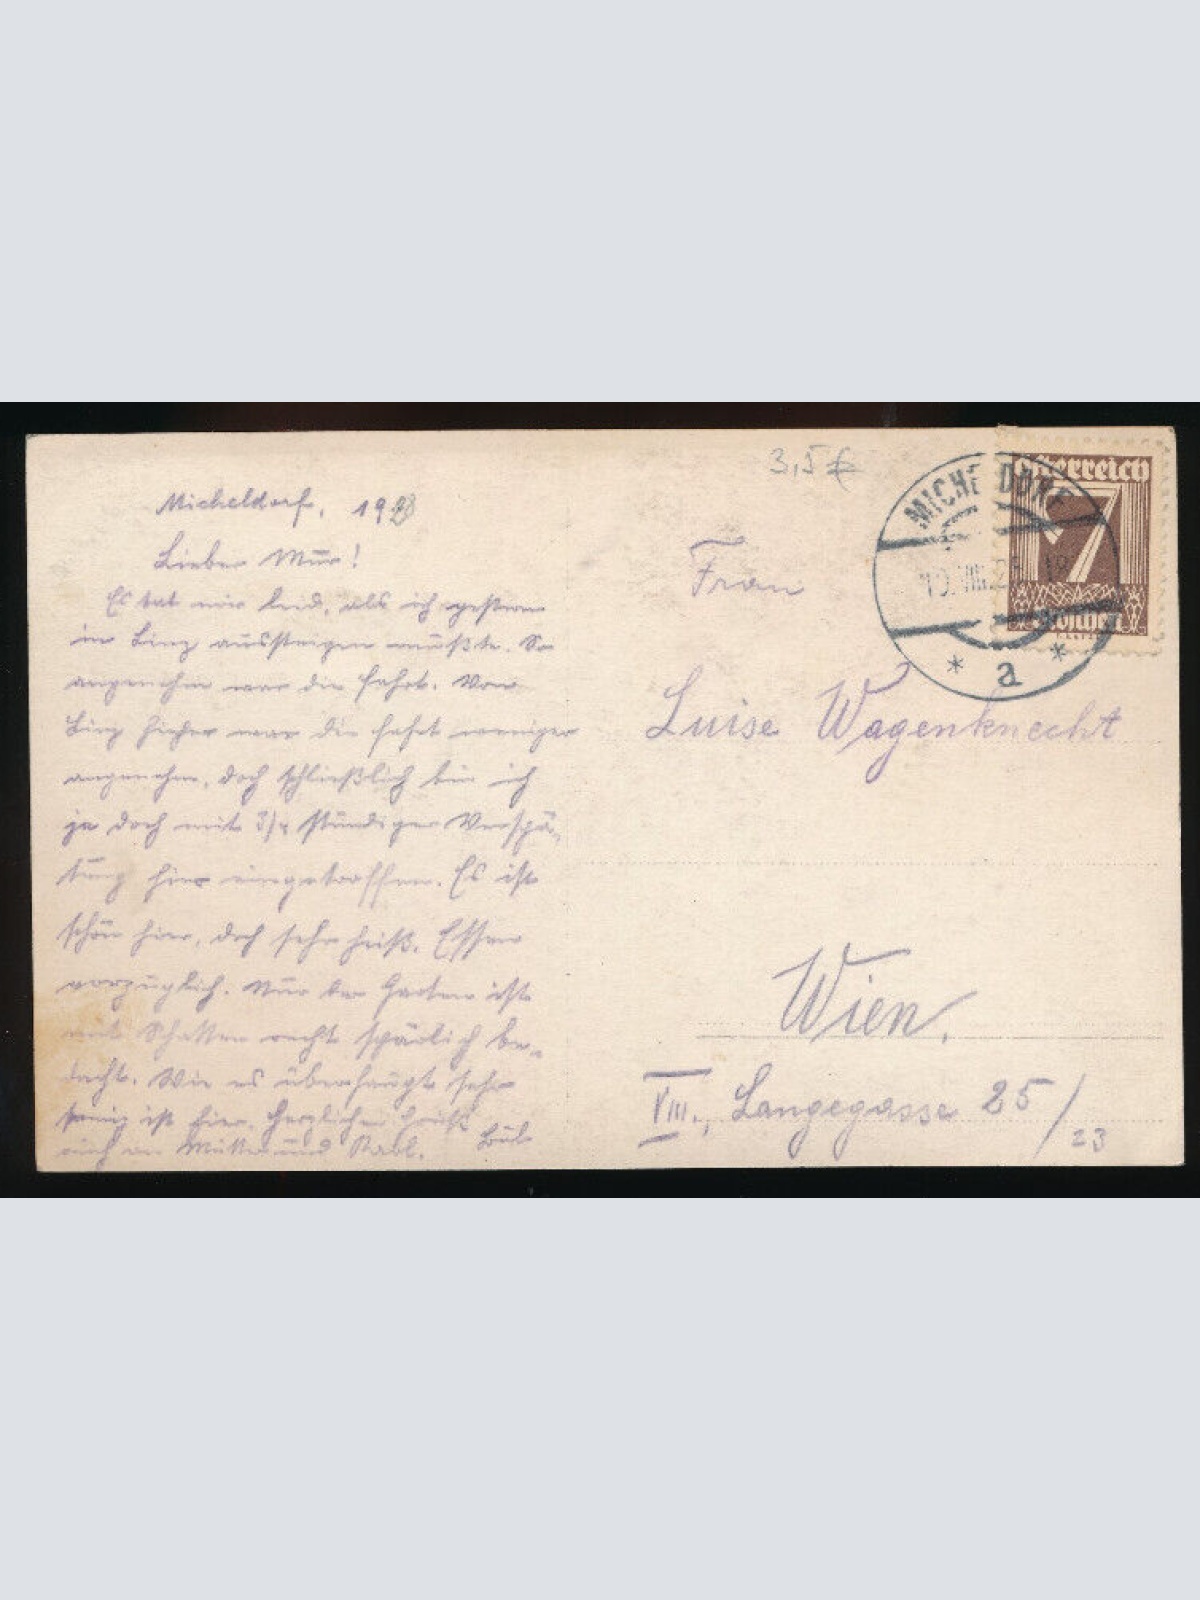 3,5 €
Micheldorf, 1928
Lieber Mur!
Es tat mir leid, als ich gestern
in Linz aussteigen mußte. So
angenehm war die Fahrt. Von
Linz hieher war die Fahrt weniger
angenehm, doch schließlich bin ich
ja doch mit 3/4 stündiger Verspä-
tung hier eingetroffen. Es ist
schön hier, doch sehr heiß. Essen
vorzüglich. Nur der Garten ist
mit Schatten recht spärlich be-
dacht. Wie es überhaupt sehr
ist hier. Herzlichen Gruß
auch an und
Österreich
7
Groschen
MICHELDORF
10.VIII.2
* a *
Frau
Luise Wagenknecht
Wien.
VIII., Langegasse 25/23